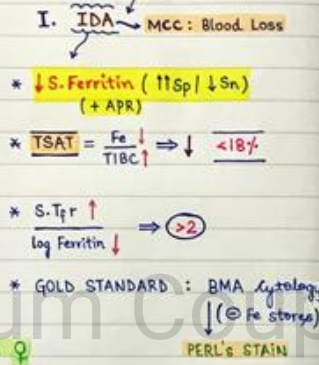 I. IDA → MCC : Blood Loss
* ↓ S. Ferritin ( ↑↑Sp / ↓Sn)
(+ APR)
* TSAT = Fe ↓ / TIBC ↑ ⇒ ↓ <18%
* S.Tfr ↑ / log Ferritin ↓ ⇒ >2
* GOLD STANDARD : BMA cytology
↓ (⊖ Fe stores)
PERL's STAIN
um Com
♀